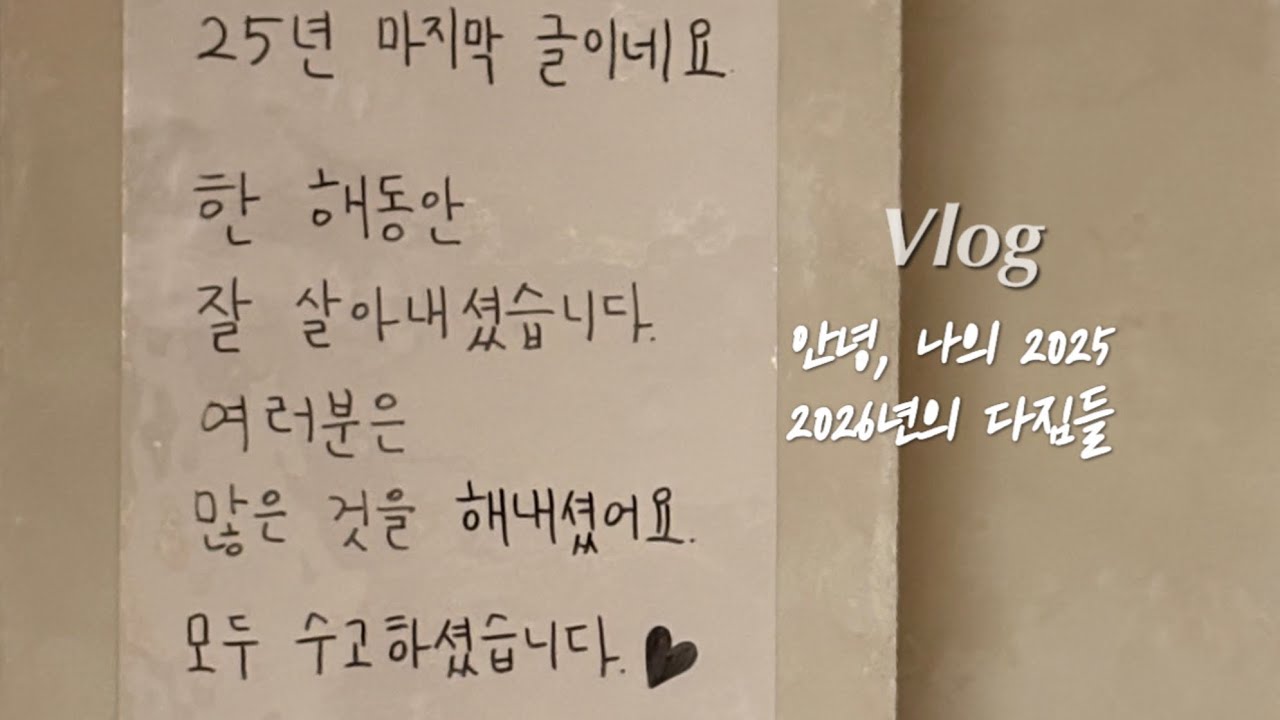 25년 마지막 글이네요.
한 해동안
잘 살아내셨습니다.
여러분은
많은 것을 해내셨어요.
모두 수고하셨습니다.
Vlog
안녕, 나의 2025
2026년의 다짐들